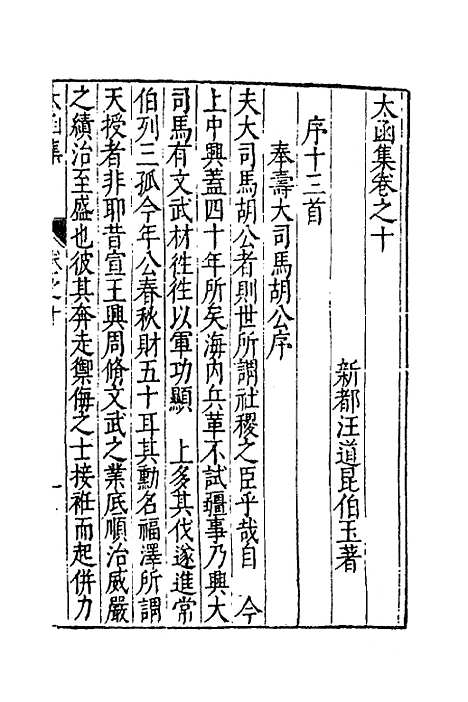 太函集卷之十
新都汪道昆伯玉著
序十三首
奉壽大司馬胡公序
夫大司馬胡公者則世所謂社稷之臣乎哉自　今
上中興蓋四十年所矣海內兵革不試疆事乃興大
司馬有文武材徃徃以軍功顯　上多其伐遂進常
伯列三孤今年公春秋財五十耳其勳名福澤所謂
天授者非耶昔宣王興周脩文武之業底順治威嚴
之績治至盛也彼其奔走禦侮之士接袵而起併力
太函集　卷之十　一